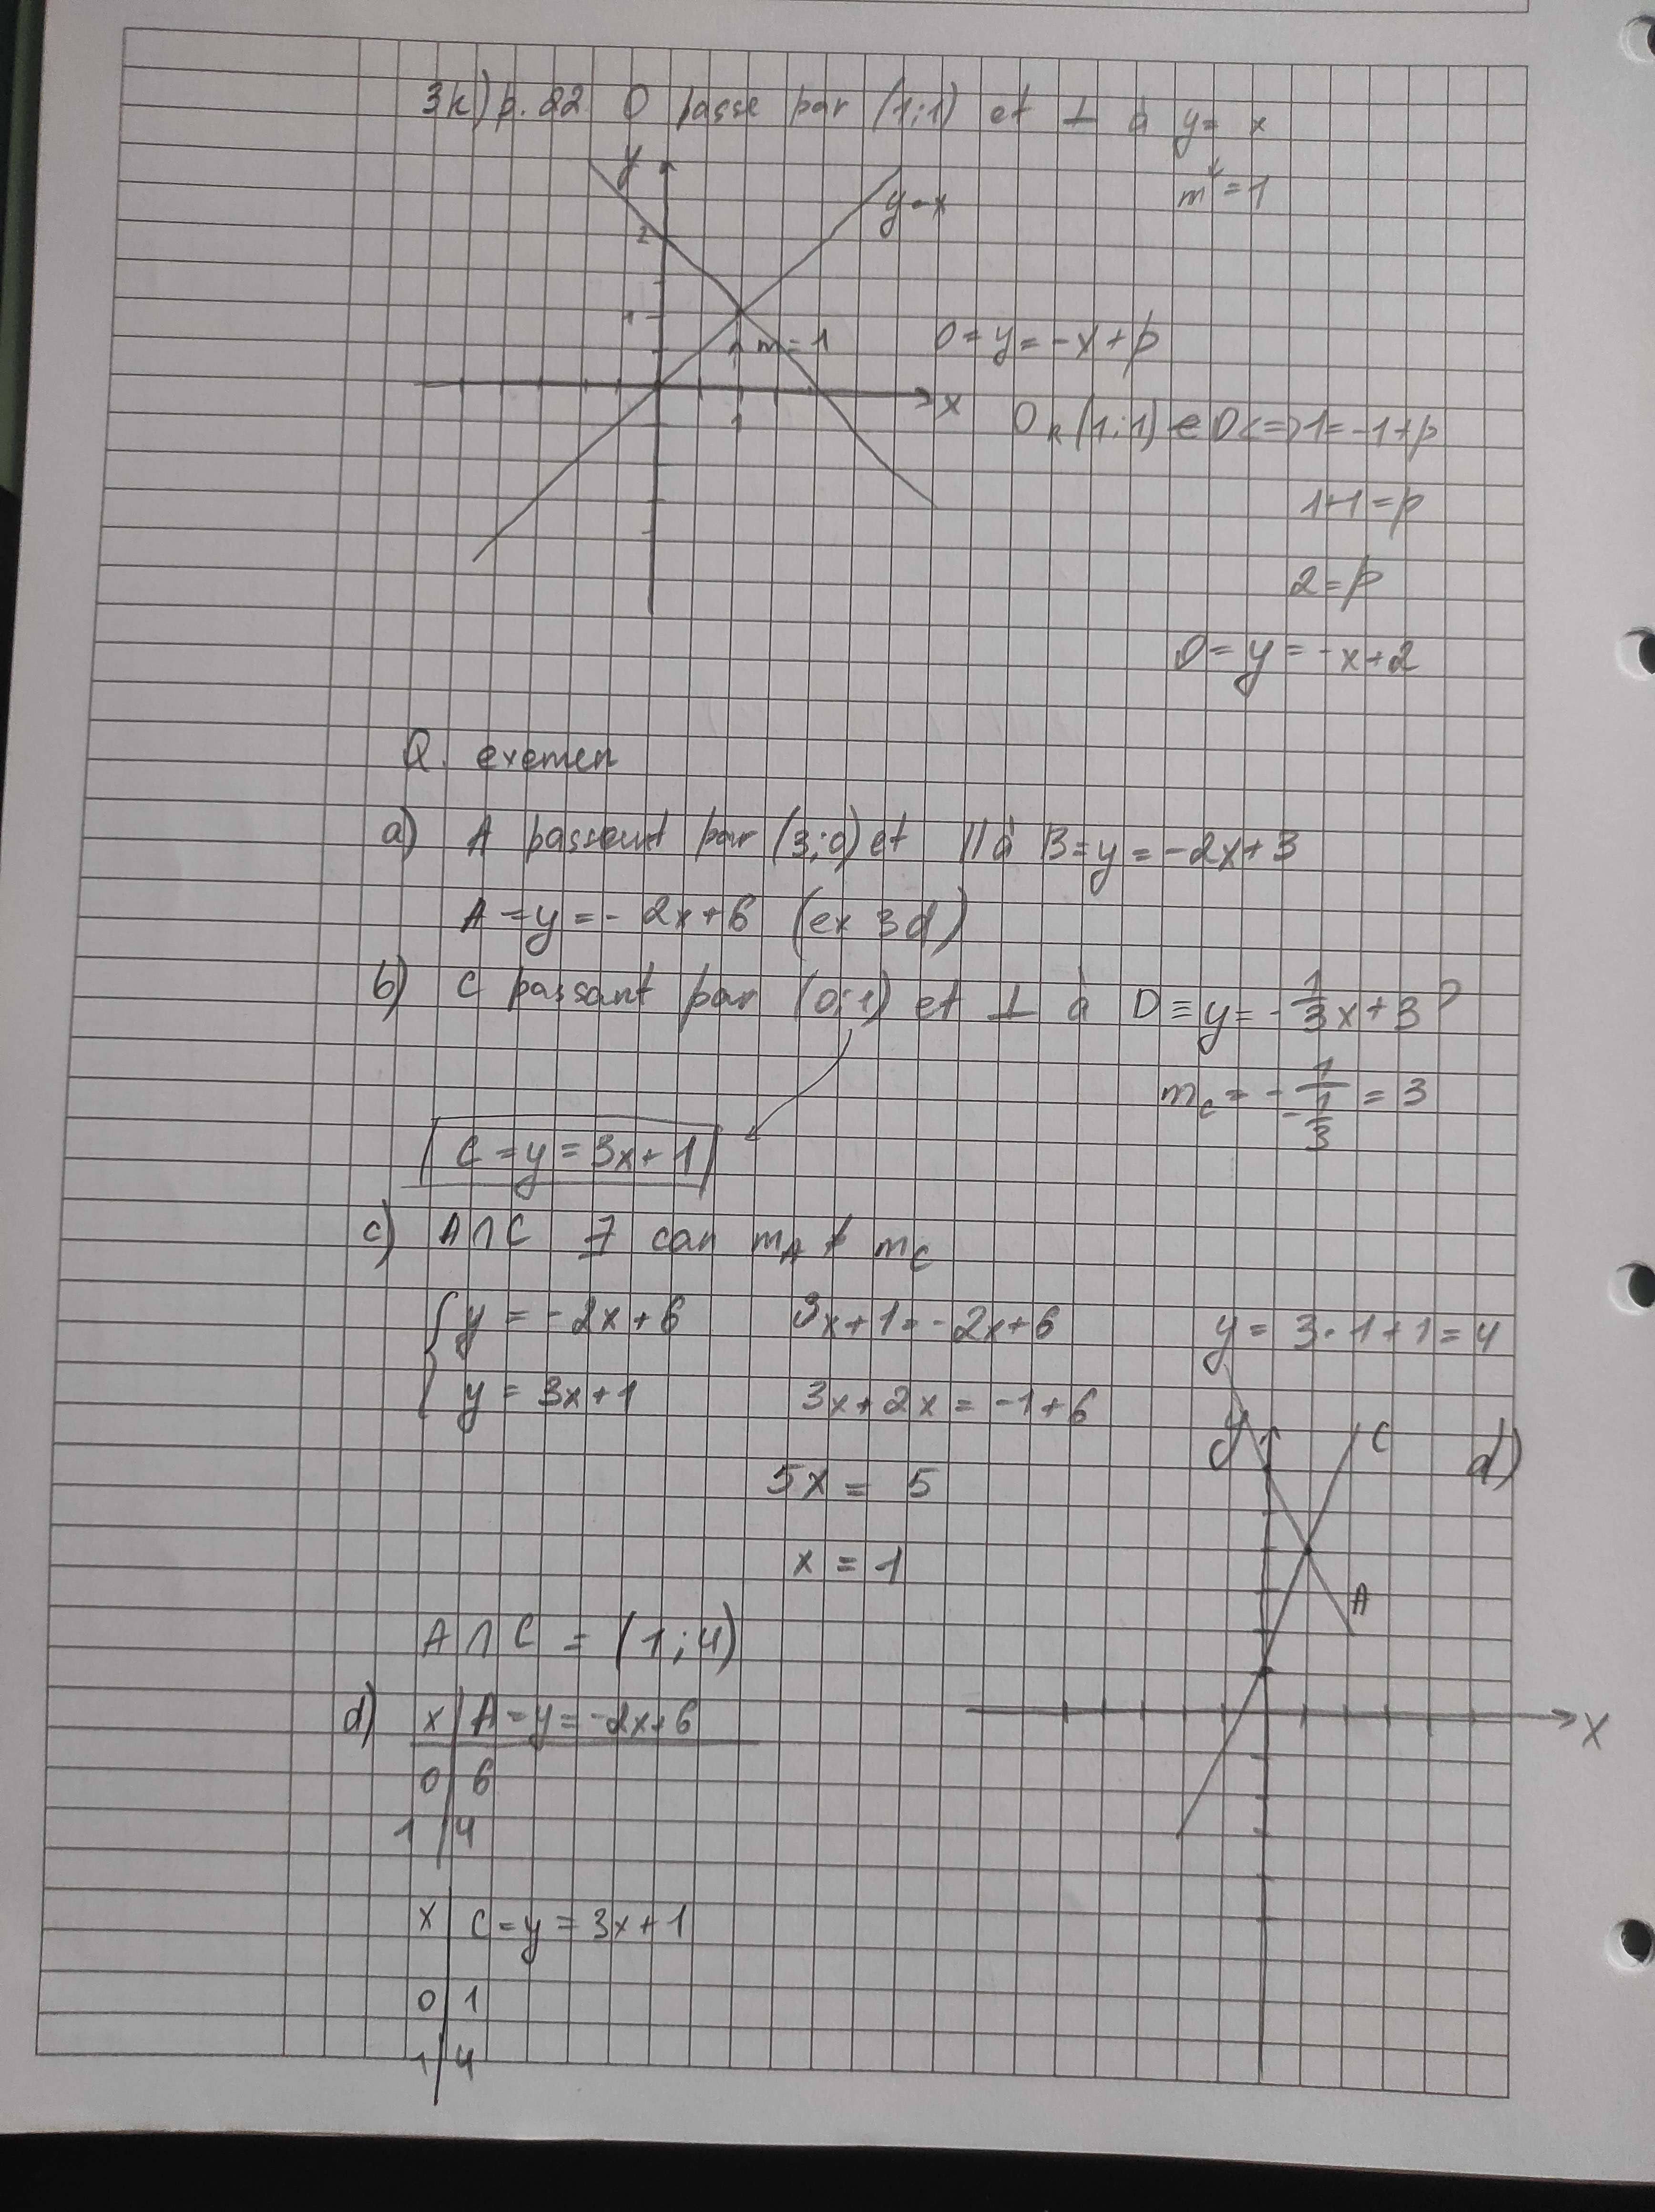 3k) p. 22. D passe par (1;1) et ⊥ à y = x
m = 1
y
y = x
2
1
1 m = 1
x
1
D ≡ y = -x + p
D, (1;1) ∈ D <=> 1 = -1 + p
1+1 = p
2 = p
D ≡ y = -x + 2
Q. examen
a) A passant par (3;0) et // à B ≡ y = -2x + 3
A ≡ y = -2x + 6 (ex 3d)
b) C passant par (0;1) et ⊥ à D ≡ y = -1/3 x + 3 ?
m_C = - 1/(-1/3) = 3
C ≡ y = 3x + 1
c) A ∩ C ∃ car m_A ≠ m_C
{ y = -2x + 6 3x + 1 = -2x + 6 y = 3 · 1 + 1 = 4
y = 3x + 1 3x + 2x = -1 + 6
y C d)
5x = 5
x = 1
A
A ∩ C = (1;4)
d) x | A ≡ y = -2x + 6
x
0 | 6
1 | 4
x | C ≡ y = 3x + 1
0 | 1
1 | 4